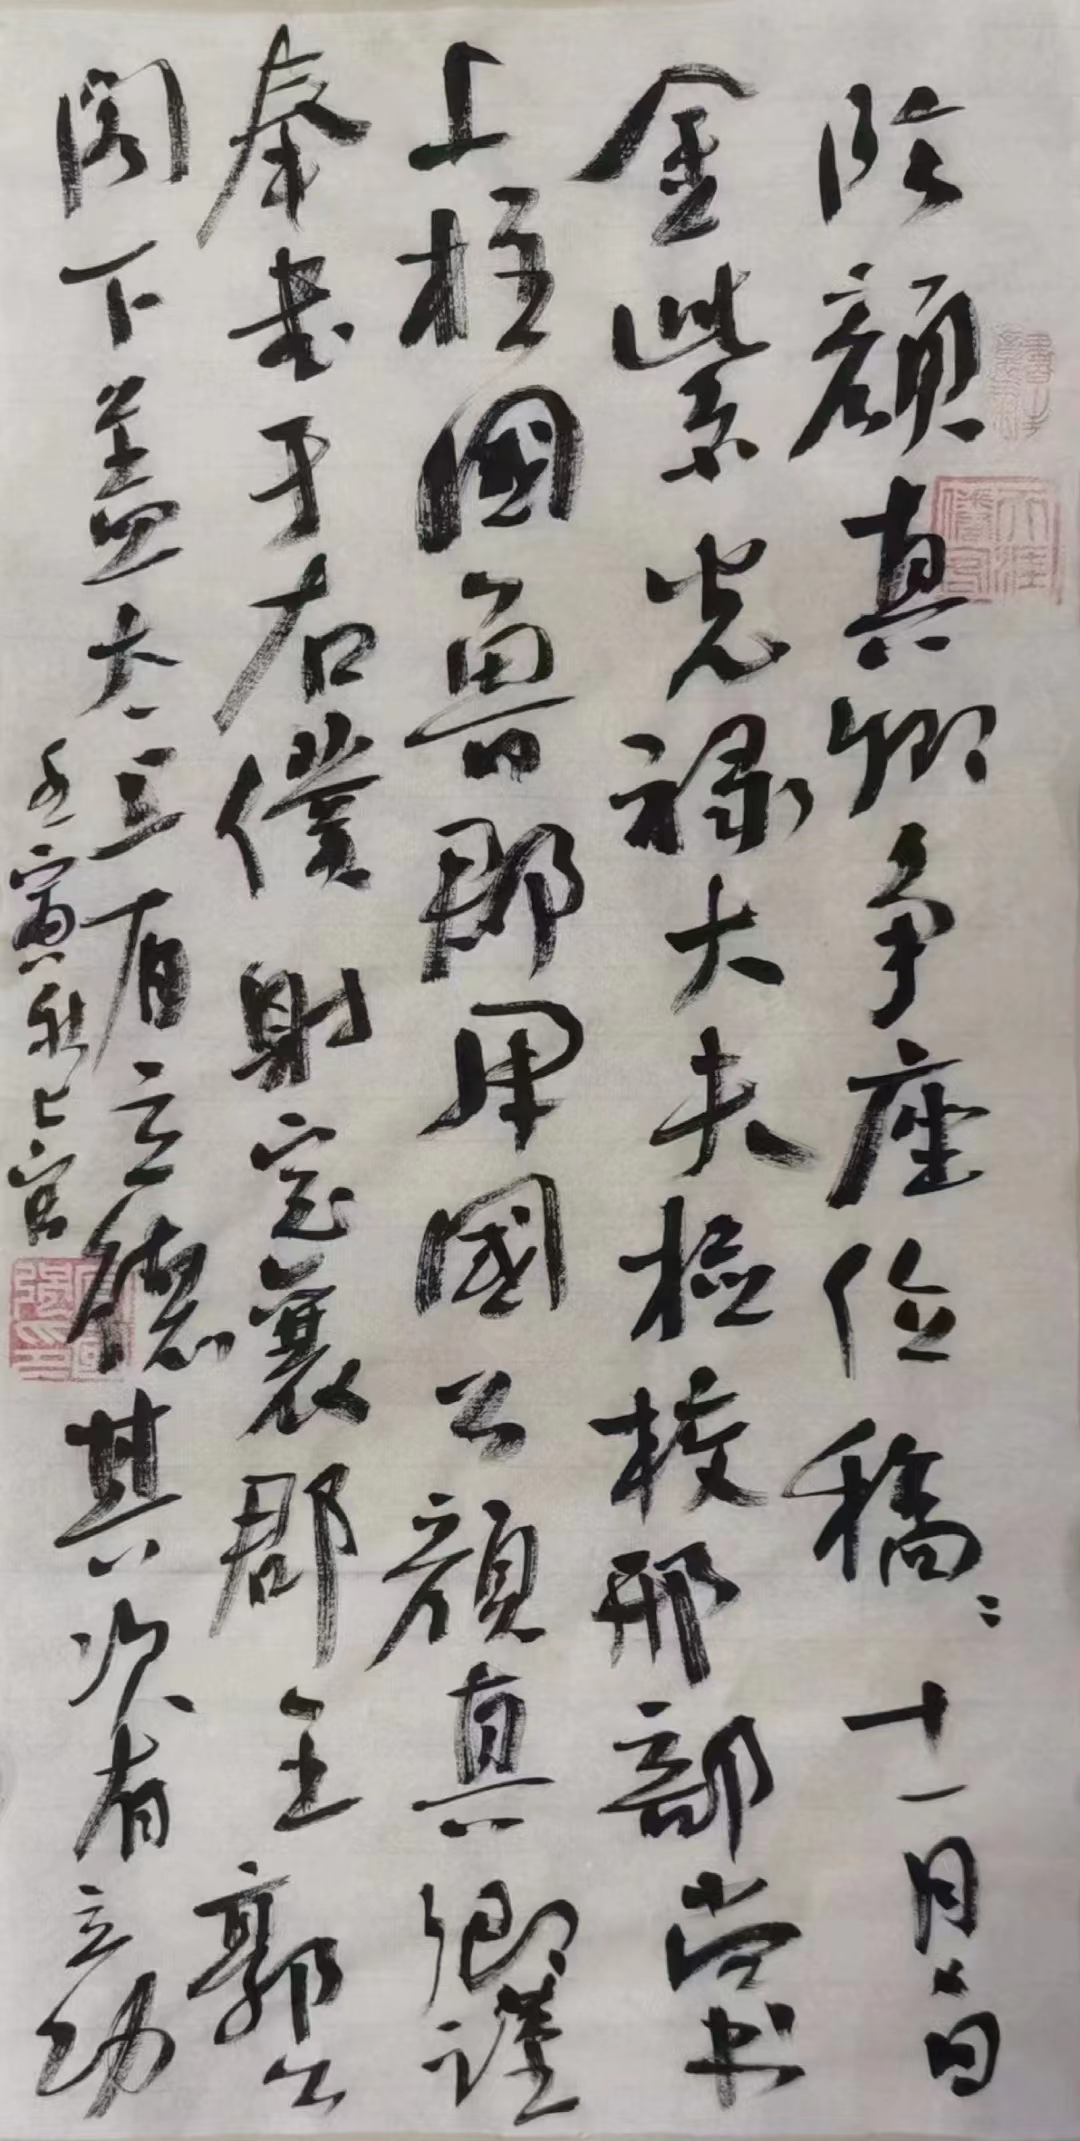 临颜真卿争座位稿：十一月日
金紫光禄大夫检校刑部尚书
上柱国鲁郡开国公颜真卿谨
奉书于右僕射定襄郡王郭公
阁下盖太上有立德其次有立功
壬寅秋